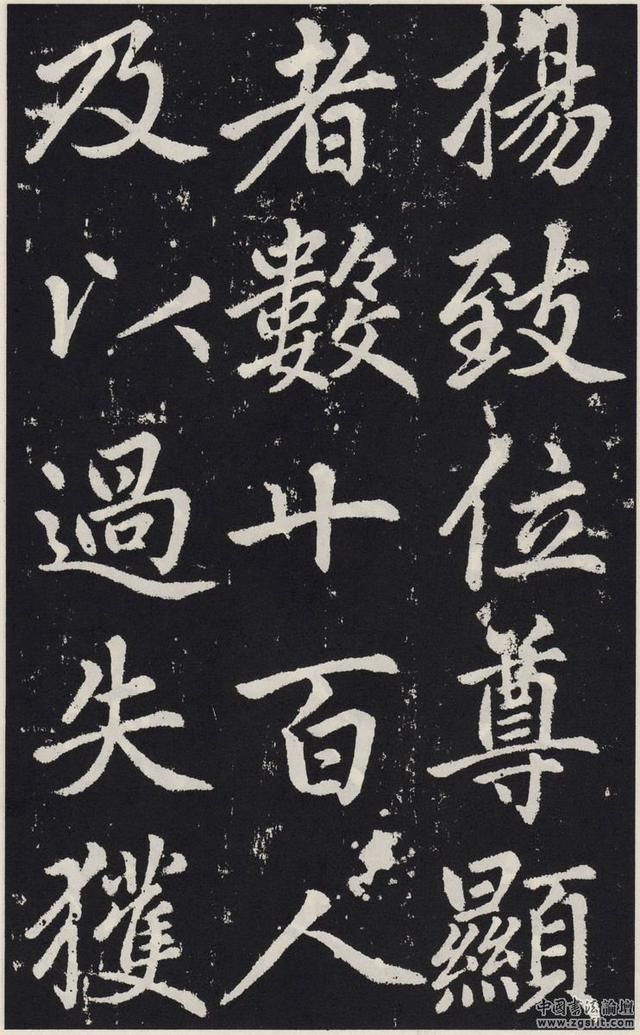 揚致位尊顯
者數十百人
及以過失獲
中国书法論壇
www.zgsflt.com